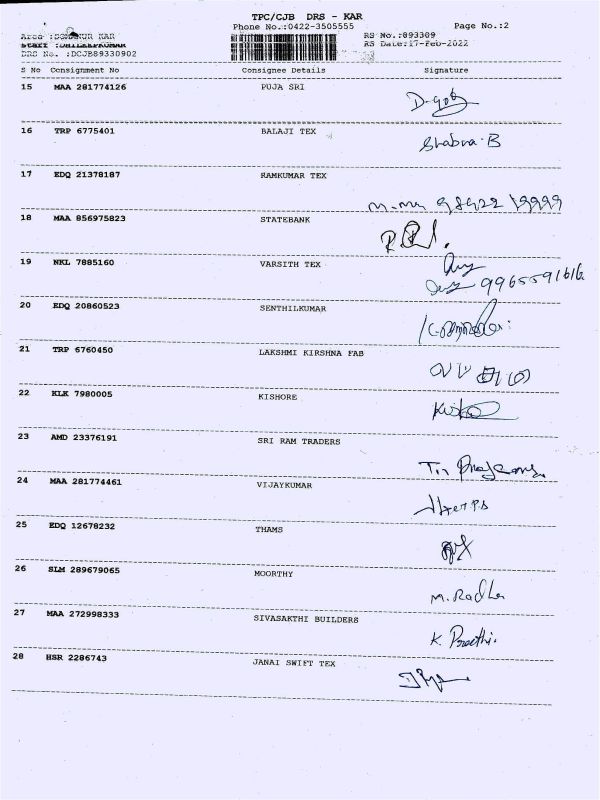 TPC/CJB DRS - KAR
Phone No.:0422-3505555
Page No.:2
KAR
RS No.:893309
RS Date:17-Feb-2022
DRS No. :DCJB89330902
S No Consignment No Consignee Details Signature
15 MAA 281774126 PUJA SRI
16 TRP 6775401 BALAJI TEX Shabna.B
17 EDQ 21378187 RAMKUMAR TEX
18 MAA 856975823 STATEBANK
19 NKL 7885160 VARSITH TEX
9965591616
20 EDQ 20860523 SENTHILKUMAR
21 TRP 6760450 LAKSHMI KIRSHNA FAB
22 KLK 7980005 KISHORE
23 AMD 23376191 SRI RAM TRADERS
24 MAA 281774461 VIJAYKUMAR
25 EDQ 12678232 THAMS
26 SLM 289679065 MOORTHY M. Radha
27 MAA 272998333 SIVASAKTHI BUILDERS K. Preethi.
28 HSR 2286743 JANAI SWIFT TEX